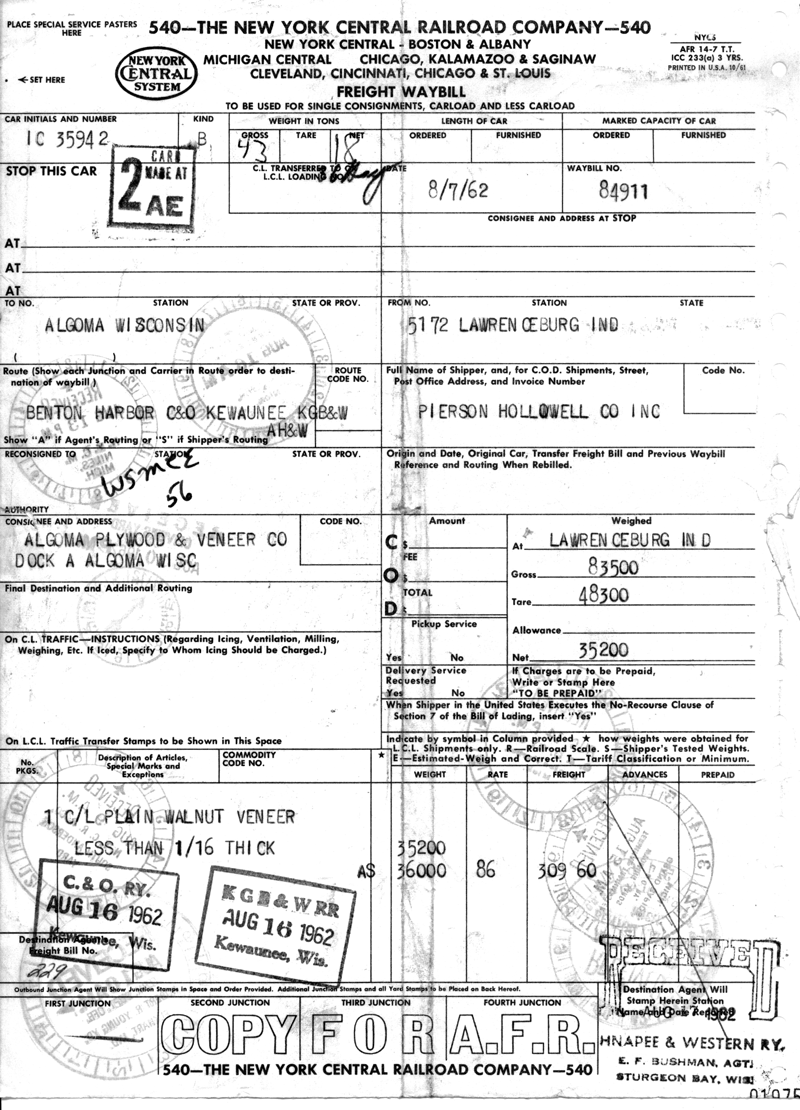 PLACE SPECIAL SERVICE PASTERS
HERE
540—THE NEW YORK CENTRAL RAILROAD COMPANY—540
NEW YORK CENTRAL - BOSTON & ALBANY
MICHIGAN CENTRAL CHICAGO, KALAMAZOO & SAGINAW
CLEVELAND, CINCINNATI, CHICAGO & ST. LOUIS
FREIGHT WAYBILL
TO BE USED FOR SINGLE CONSIGNMENTS, CARLOAD AND LESS CARLOAD
NEW YORK
CENTRAL
SYSTEM
SET HERE
AFR 14-7 T.T.
ICC 233(a) 3 YRS.
PRINTED IN U.S.A. 10/61
CAR INITIALS AND NUMBER KIND WEIGHT IN TONS LENGTH OF CAR MARKED CAPACITY OF CAR
GROSS TARE NET ORDERED FURNISHED ORDERED FURNISHED
IC 35942 B 43 18
STOP THIS CAR
2 CAR
MADE AT
AE
C.L. TRANSFERRED TO
L.C.L. LOADING
DATE
8/7/62
WAYBILL NO.
84911
CONSIGNEE AND ADDRESS AT STOP
AT
AT
AT
TO NO. STATION STATE OR PROV. FROM NO. STATION STATE
ALGOMA WISCONSIN 5172 LAWRENCEBURG IND
Route (Show each Junction and Carrier in Route order to desti-
nation of waybill)
ROUTE
CODE NO.
Full Name of Shipper, and, for C.O.D. Shipments, Street,
Post Office Address, and Invoice Number
Code No.
BENTON HARBOR C&O KEWAUNEE KGB&W
AH&W
PIERSON HOLLOWELL CO INC
Show "A" if Agent's Routing or "S" if Shipper's Routing
RECONSIGNED TO STATION STATE OR PROV.
Origin and Date, Original Car, Transfer Freight Bill and Previous Waybill
Reference and Routing When Rebilled.
56
AUTHORITY
CONSIGNEE AND ADDRESS CODE NO.
ALGOMA PLYWOOD & VENEER CO
DOCK A ALGOMA WISC
Amount Weighed
C $
FEE
O $
TOTAL
D $
At LAWRENCEBURG IND
Gross 83500
Tare 48300
Allowance
Net 35200
Final Destination and Additional Routing
Pickup Service
Yes No
On C.L. TRAFFIC—INSTRUCTIONS (Regarding Icing, Ventilation, Milling,
Weighing, Etc. If Iced, Specify to Whom Icing Should be Charged.)
Delivery Service
Requested
Yes No
If Charges are to be Prepaid,
Write or Stamp Here
"TO BE PREPAID"
When Shipper in the United States Executes the No-Recourse Clause of
Section 7 of the Bill of Lading, insert "Yes"
On L.C.L. Traffic Transfer Stamps to be Shown in This Space
Indicate by symbol in Column provided ★ how weights were obtained for
L.C.L. Shipments only. R—Railroad Scale. S—Shipper's Tested Weights.
E—Estimated-Weigh and Correct. T—Tariff Classification or Minimum.
No.
PKGS.
Description of Articles,
Special Marks and
Exceptions
COMMODITY
CODE NO.
★ WEIGHT RATE FREIGHT ADVANCES PREPAID
1 C/L PLAIN WALNUT VENEER
LESS THAN 1/16 THICK 35200
A$ 36000 86 309 60
C. & O. RY.
AUG 16 1962
Kewaunee, Wis.
K G B & W RR
AUG 16 1962
Kewaunee, Wis.
Destination Agent's
Freight Bill No.
229
RECEIVED
Destination Agent Will
Stamp Herein Station
Name and Date Reported
1962
Outbound Junction Agent Will Show Junction Stamps in Space and Order Provided. Additional Junction Stamps and all Yard Stamps to be Placed on Back Hereof.
FIRST JUNCTION SECOND JUNCTION THIRD JUNCTION FOURTH JUNCTION
COPY FOR A.F.R.
540—THE NEW YORK CENTRAL RAILROAD COMPANY—540
HNAPEE & WESTERN RY.
E. F. BUSHMAN, AGT.
STURGEON BAY, WIS